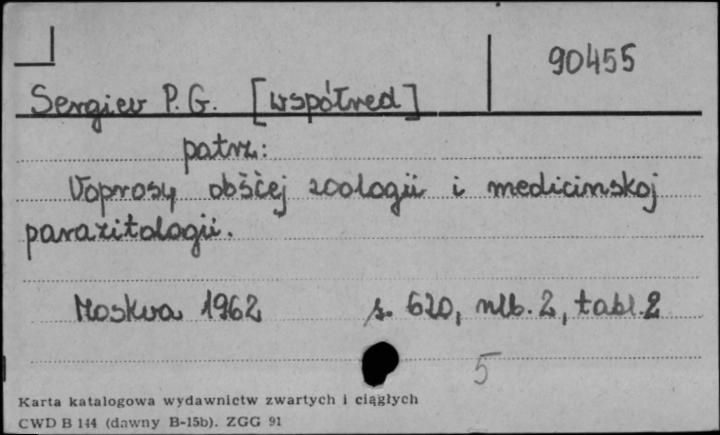 90455
Sergiev P. G. [współred]
patrz:
Voprosy obščej zoologii i medicinskoj
parazitologii.
Moskva 1962 s. 620, nlb. 2, tabl. 2
5
Karta katalogowa wydawnictw zwartych i ciągłych
CWD B 144 (dawny B-15b). ZGG 91